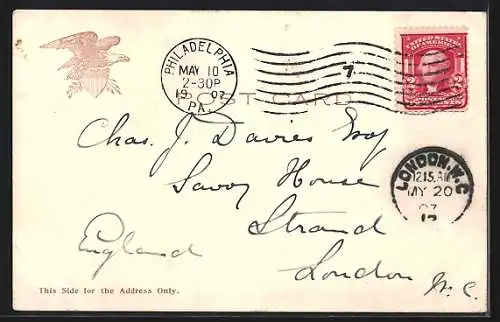 PHILADELPHIA
MAY 10
2-30P
1907
PA.
7
UNITED STATES
OF AMERICA
2 2
POST CARD
Chas. J. Davies Esq
Savoy House
Strand
London W.C.
England
LONDON, W.C
12.15.AM
MY 20
07
12
This Side for the Address Only.